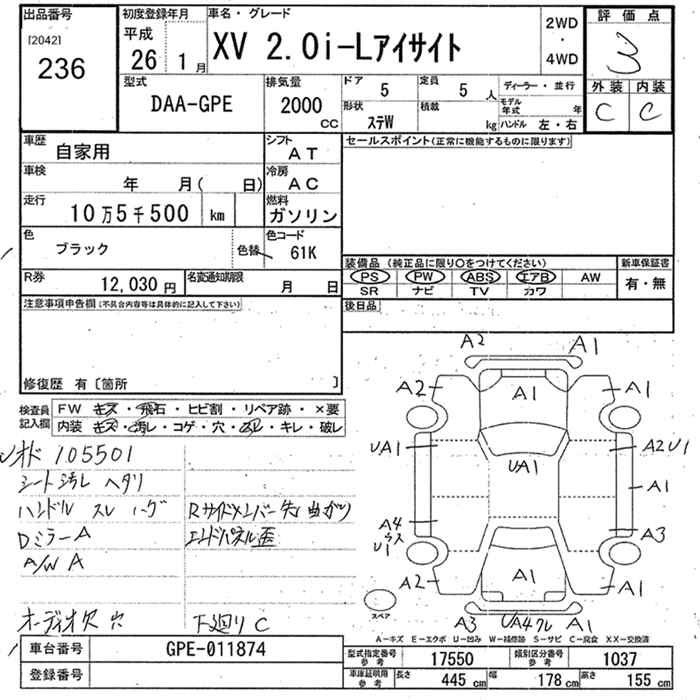 出品番号
[2042]
236
初度登録年月
平成
26 1月
車名・グレード
XV 2.0i-Lアイサイト
2WD
・
4WD
評価点
3
外装 内装
C C
型式
DAA-GPE
排気量
2000
CC
ドア
5
定員
5 人
ディーラー・並行
形状
ステW
積載
kg
モデル年式 年
ハンドル 左・右
車歴
自家用
シフト
AT
車検
年 月( 日)
冷房
AC
走行
10万5千500 km
燃料
ガソリン
色
ブラック
色替
色コード
61K
R券
12,030円
名変通知期限
月 日
セールスポイント(正常に機能するものに限ります)
装備品(純正品に限り○をつけてください)
PS PW ABS エアB AW
SR ナビ TV カワ
新車保証書
有・無
後日品
注意事項申告欄(不具合内容等は具体的に記入して下さい)
修復歴 有〔箇所 〕
検査員記入欄
FW キズ・飛石・ヒビ割・リペア跡・×要
内装 キズ・汚レ・コゲ・穴・スレ・キレ・破レ
105501
シート汚レ ヘタリ
ハンドル スレ ハゲ
DミラーA
A/W A
オーディオ欠 穴
Rサイドメンバー先曲がり
エンドパネル歪
下廻りC
A2 A1
A2 A1 A1
UA1 UA1 A2U1
A1
A4 A3
U1
A2 A1 A1
A3 UA4 A1
スペア
A−キズ E−エクボ U−凹み W−補修跡 S−サビ C−腐食 XX−交換済
車台番号
GPE-011874
登録番号
型式指定番号
参考
17550
類別区分番号
参考
1037
車庫証明用
参考
長さ 445 cm 幅 178 cm 高さ 155 cm